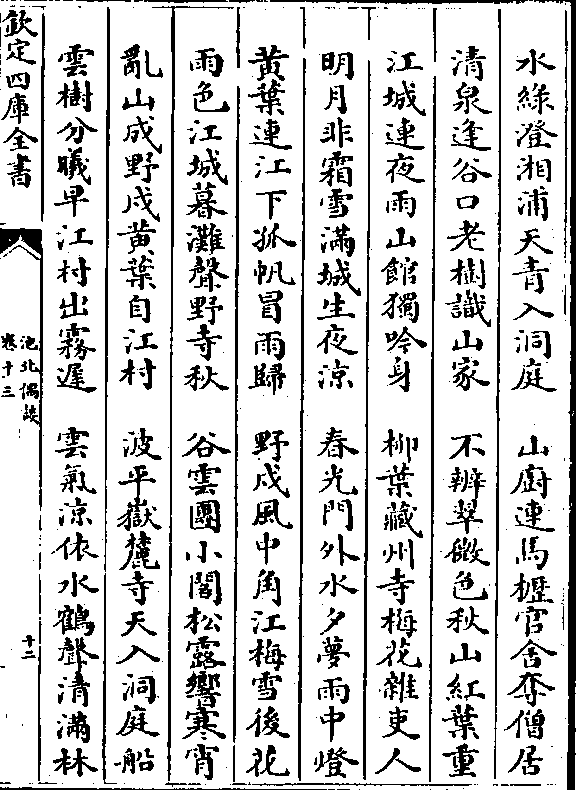 水綠澄湘浦天青入洞庭　山廚連馬櫪官舍奪僧居
清泉逢谷口老樹識山家　不辨翠微色秋山紅葉重
江城連夜雨山館獨吟身　柳葉藏州寺梅花雜吏人
明月非霜雪滿城生夜涼　春光門外水夕夢雨中燈
黃葉連江下孤帆冒雨歸　野戍風中角江梅雪後花
雨色江城暮灘聲野寺秋　谷雲團小閣松露響寒宵
亂山成野戍黃葉自江村　波平嶽麓寺天入洞庭船
雲樹分曦早江村出霧遲　雲氣涼依水鶴聲清滿林
欽定四庫全書
池北偶談
卷十三
十二